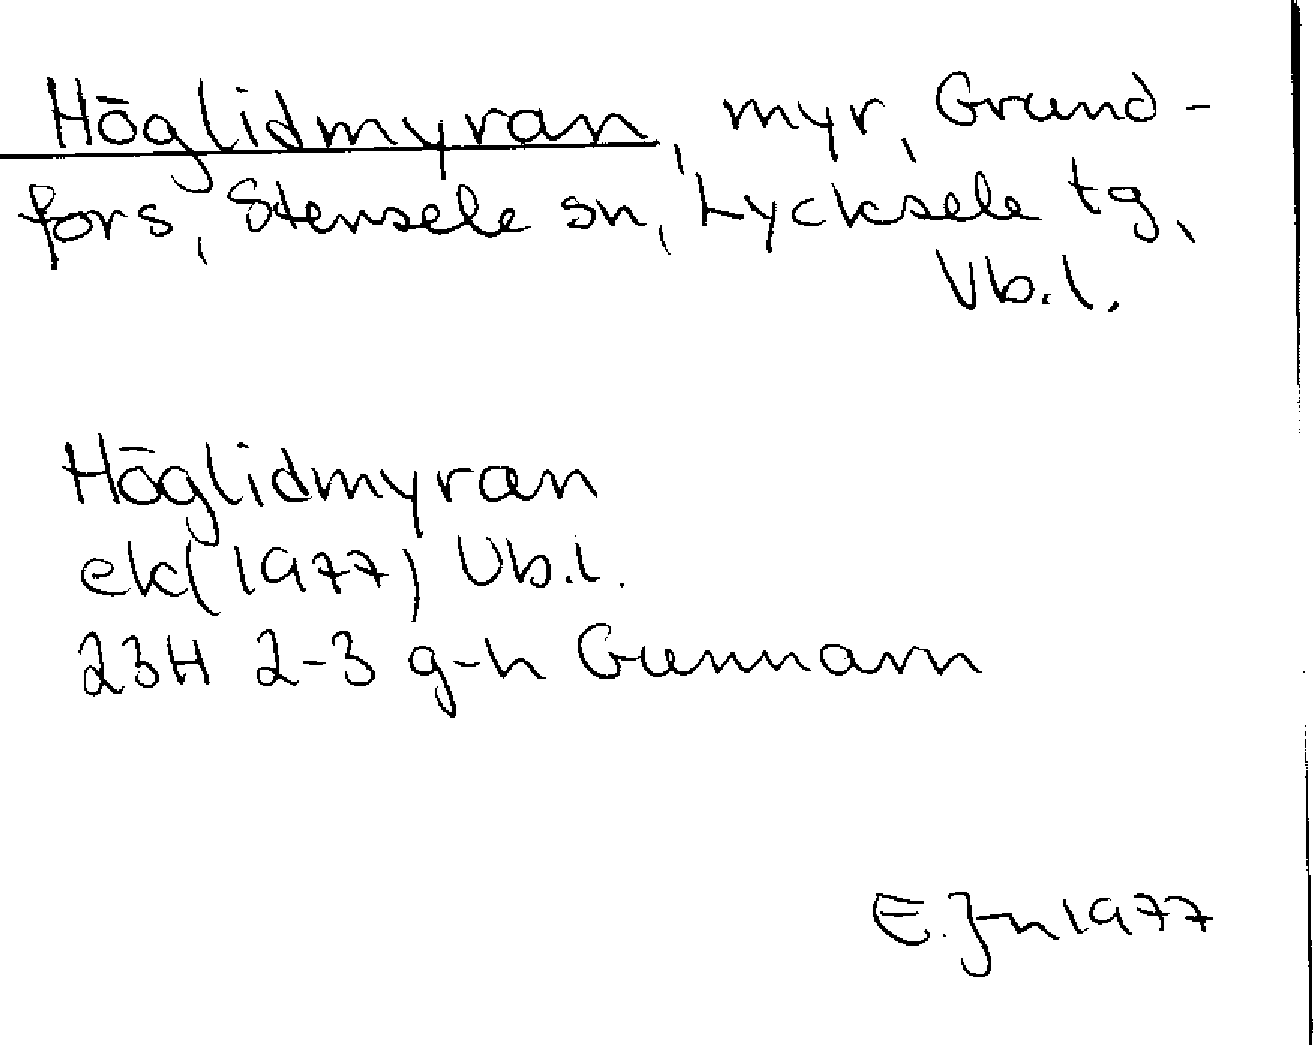 Höglidmyran, myr, Grund-
fors, Stensele sn, Lycksele tg,
Vb.l.
Höglidmyran
ek (1977) Vb.l.
23H 2-3 g-h Gunnarn
E. Jn 1977